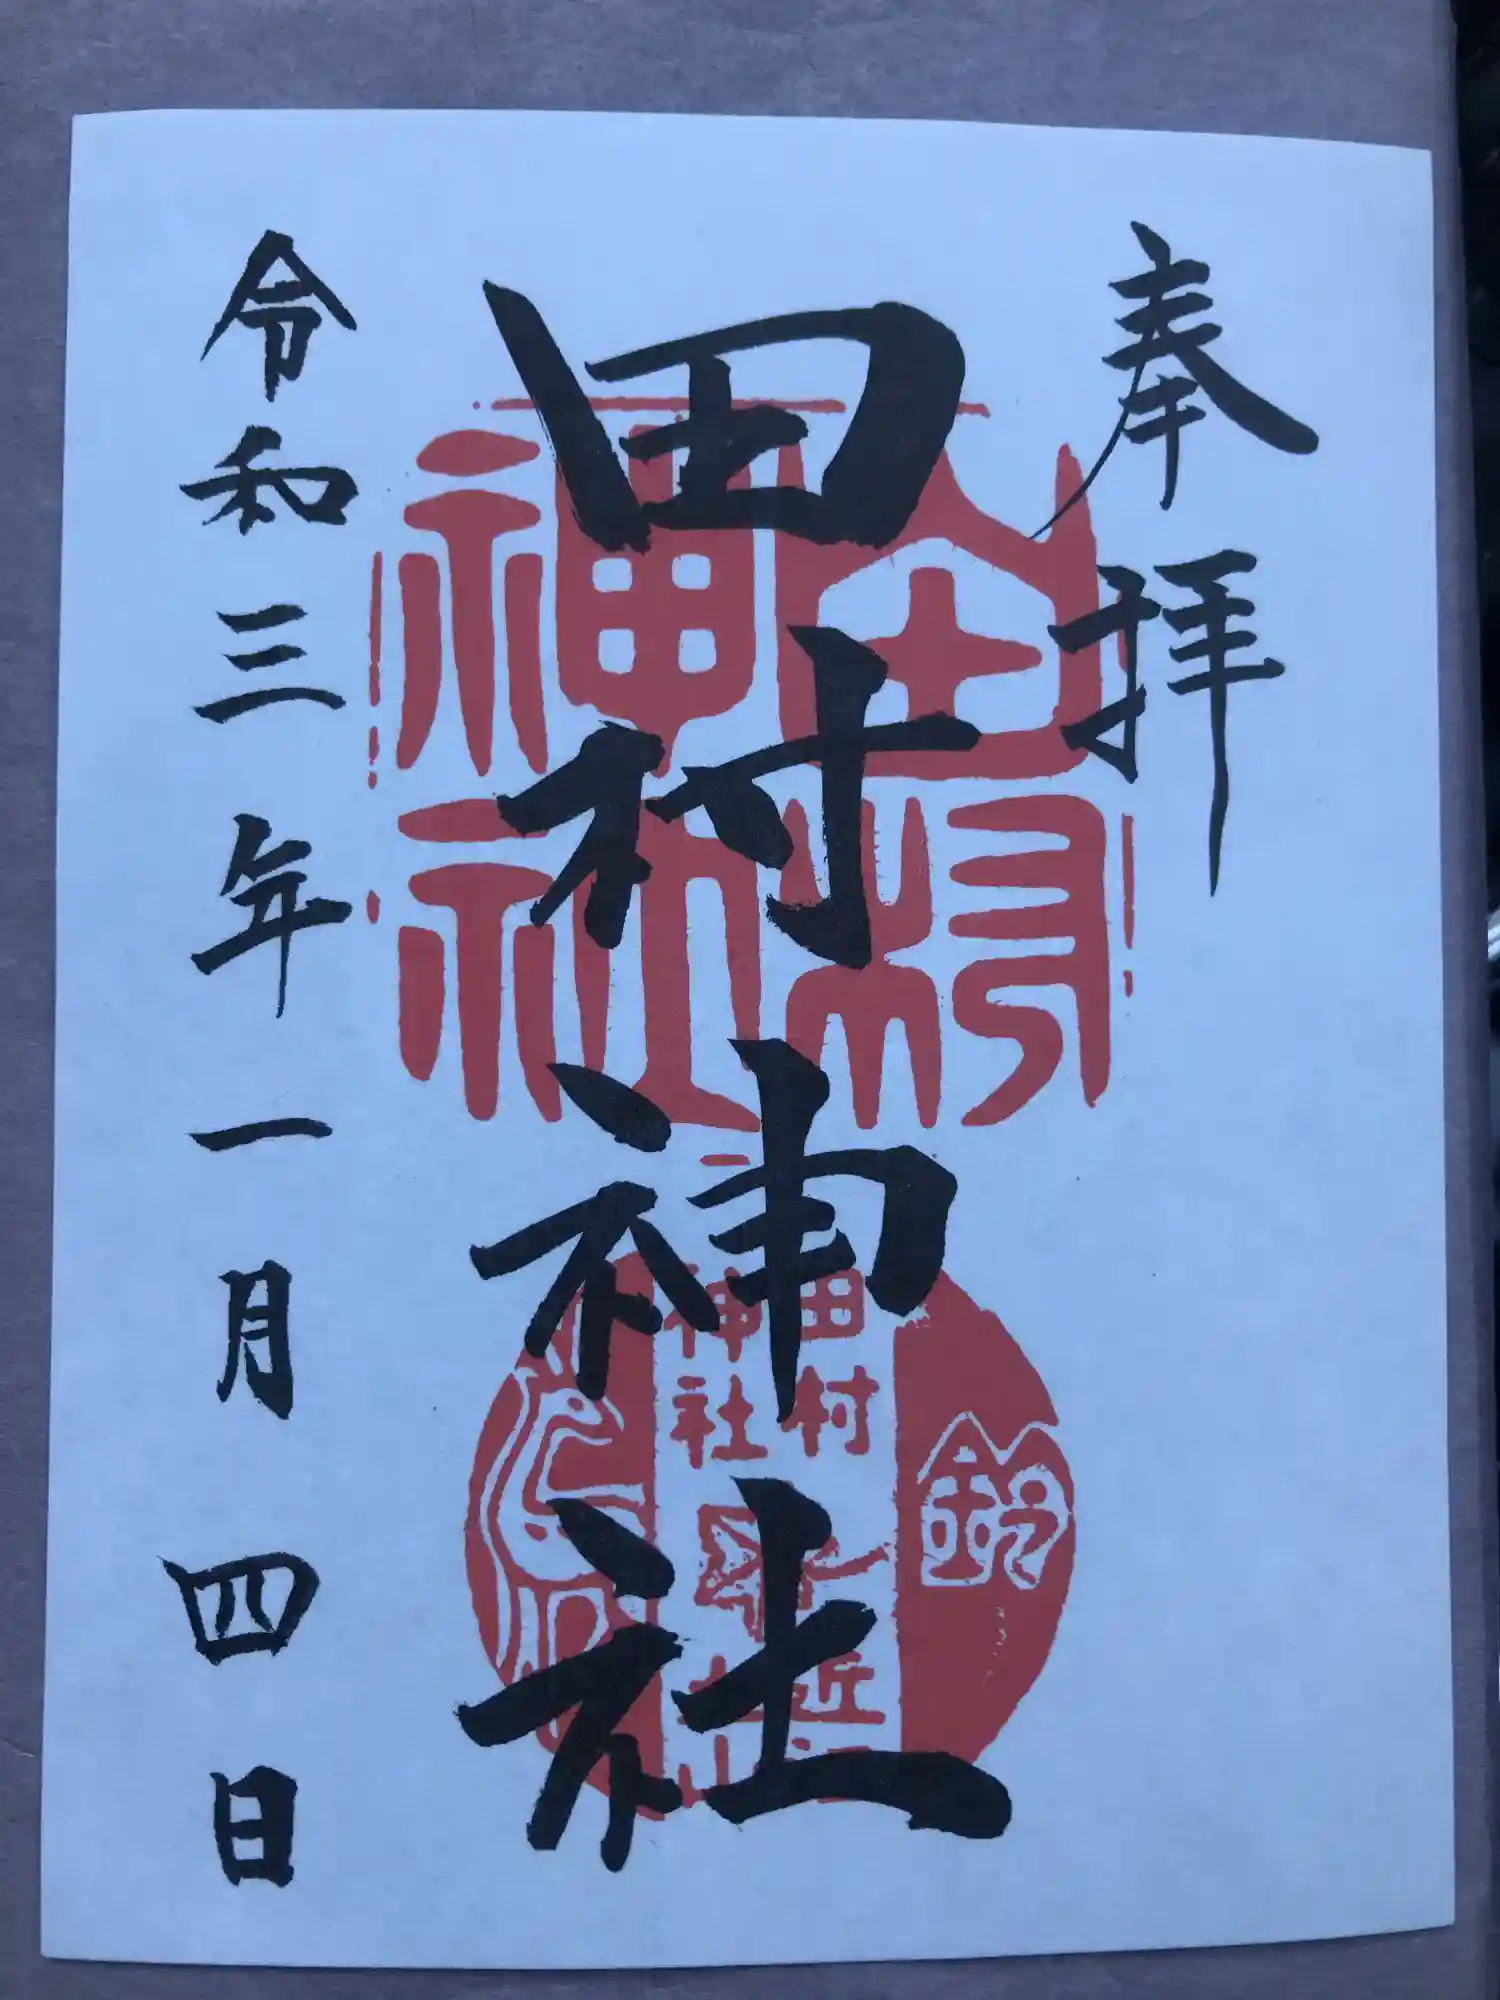 奉拝
田村神社
令和三年一月四日
田村神社
鈴
田村
神社
近